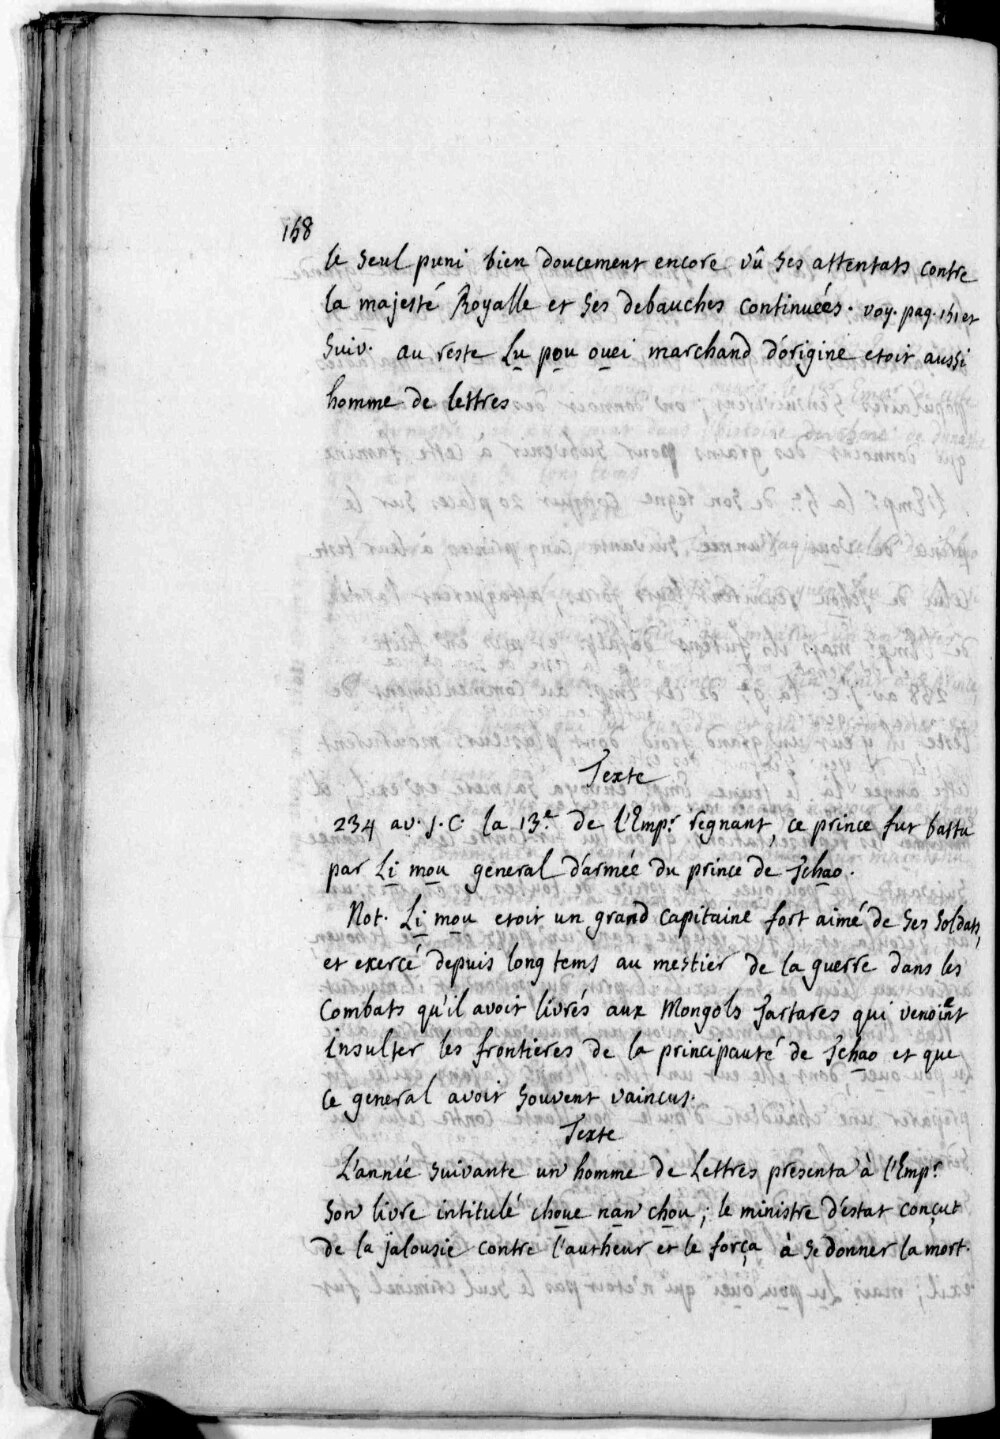 168
le seul puni bien doucement encore vû ses attentats contre
la majesté Royalle et ses debauches continuées. voy. pag. 161 et
suiv. au reste Lu pou ouei marchand d'origine etoit aussi
homme de lettres
Texte
234 av. J. C. la 13.e de l'Emp.r regnant, ce prince fut battu
par Li mou general d'armée du prince de Tchao.
Not. Li mou etoit un grand capitaine fort aimé de ses soldats,
et exercé depuis long tems au mestier de la guerre dans les
combats qu'il avoit livrés aux Mongols Tartares qui venoient
insulter les frontieres de la principauté de Tchao et que
ce general avoit souvent vaincus.
Texte
L'année suivante un homme de Lettres presenta à l'Emp.r
son livre intitulé choue nan chou; le ministre d'estat conçut
de la jalousie contre l'autheur et le força à se donner la mort.